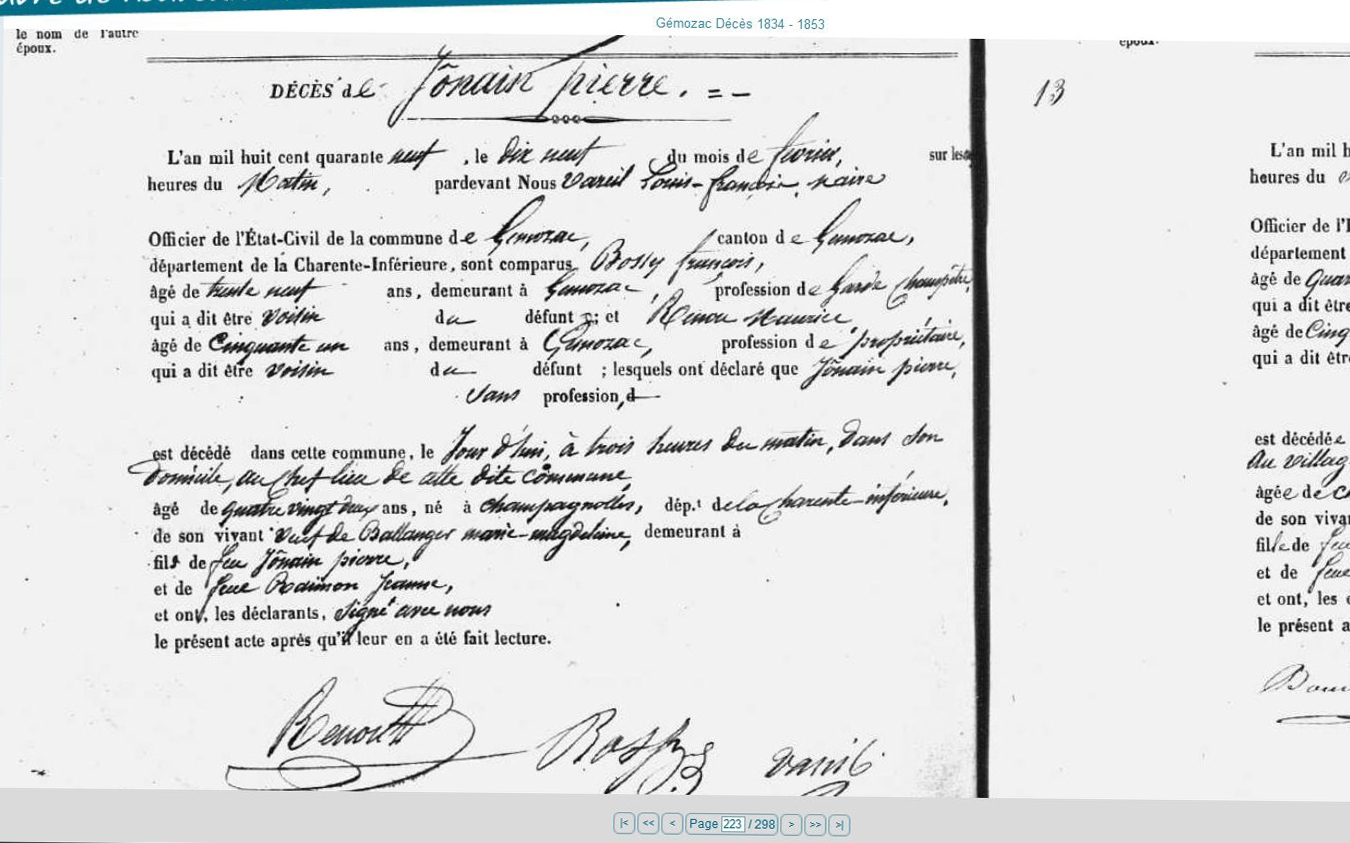 Gémozac Décès 1834 - 1853
le nom de l'autre
époux.
époux.
DÉCÈS de Jônain pierre. = -
13
L'an mil huit cent quarante neuf, le Dix neuf du mois de fevrier, sur les
heures du Matin, pardevant Nous Vareil Louis-françois, maire
Officier de l'État-Civil de la commune de Gemozac, canton de Gemozac,
département de la Charente-Inférieure, sont comparus Bossy françois,
âgé de trente neuf ans, demeurant à Gemozac, profession de Garde Champêtre,
qui a dit être voisin du défunt ; et Renou Maurice,
âgé de Cinquante un ans, demeurant à Gémozac, profession de propriétaire,
qui a dit être voisin du défunt ; lesquels ont déclaré que Jônain pierre,
sans profession, d
est décédé dans cette commune, le Jour d'hui, à trois heures du matin, dans son
Domicile, au chef lieu de cette dite commune,
âgé de quatre vingt deux ans, né à champagnolles, dép.t de la charente-inférieure,
de son vivant veuf de Ballanger marie-magdeleine, demeurant à
fils de feu Jônain pierre,
et de feue Raimon Jeanne,
et ont, les déclarants, signé avec nous
le présent acte après qu'il leur en a été fait lecture.
Renou Bossy Vareil
L'an mil h
heures du
Officier de l'É
département
âgé de Quar
qui a dit être
âgé de Cinq
qui a dit être
est décédée
Au village
âgée de
de son viva
fille de feu
et de feue
et ont, les
le présent a
|< << < Page 223 / 298 > >> >|